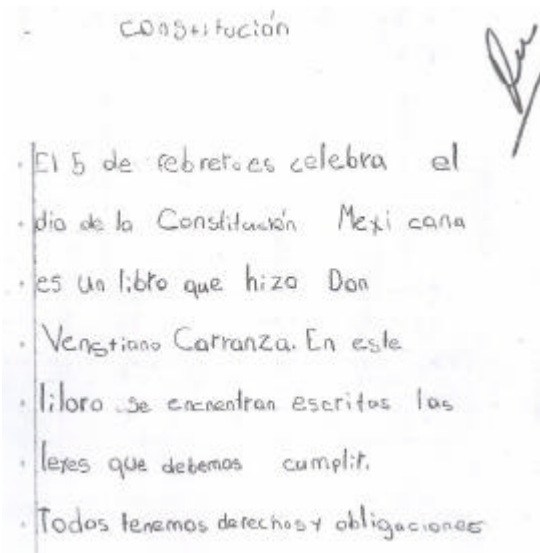 Constitución
El 5 de febrero es celebra el
dia de la Constitución Mexicana
es un libro que hizo Don
Venstiano Carranza. En este
libro se encnentran escritas las
leyes que debemos cumplir.
Todos tenemos derechos y obligaciones